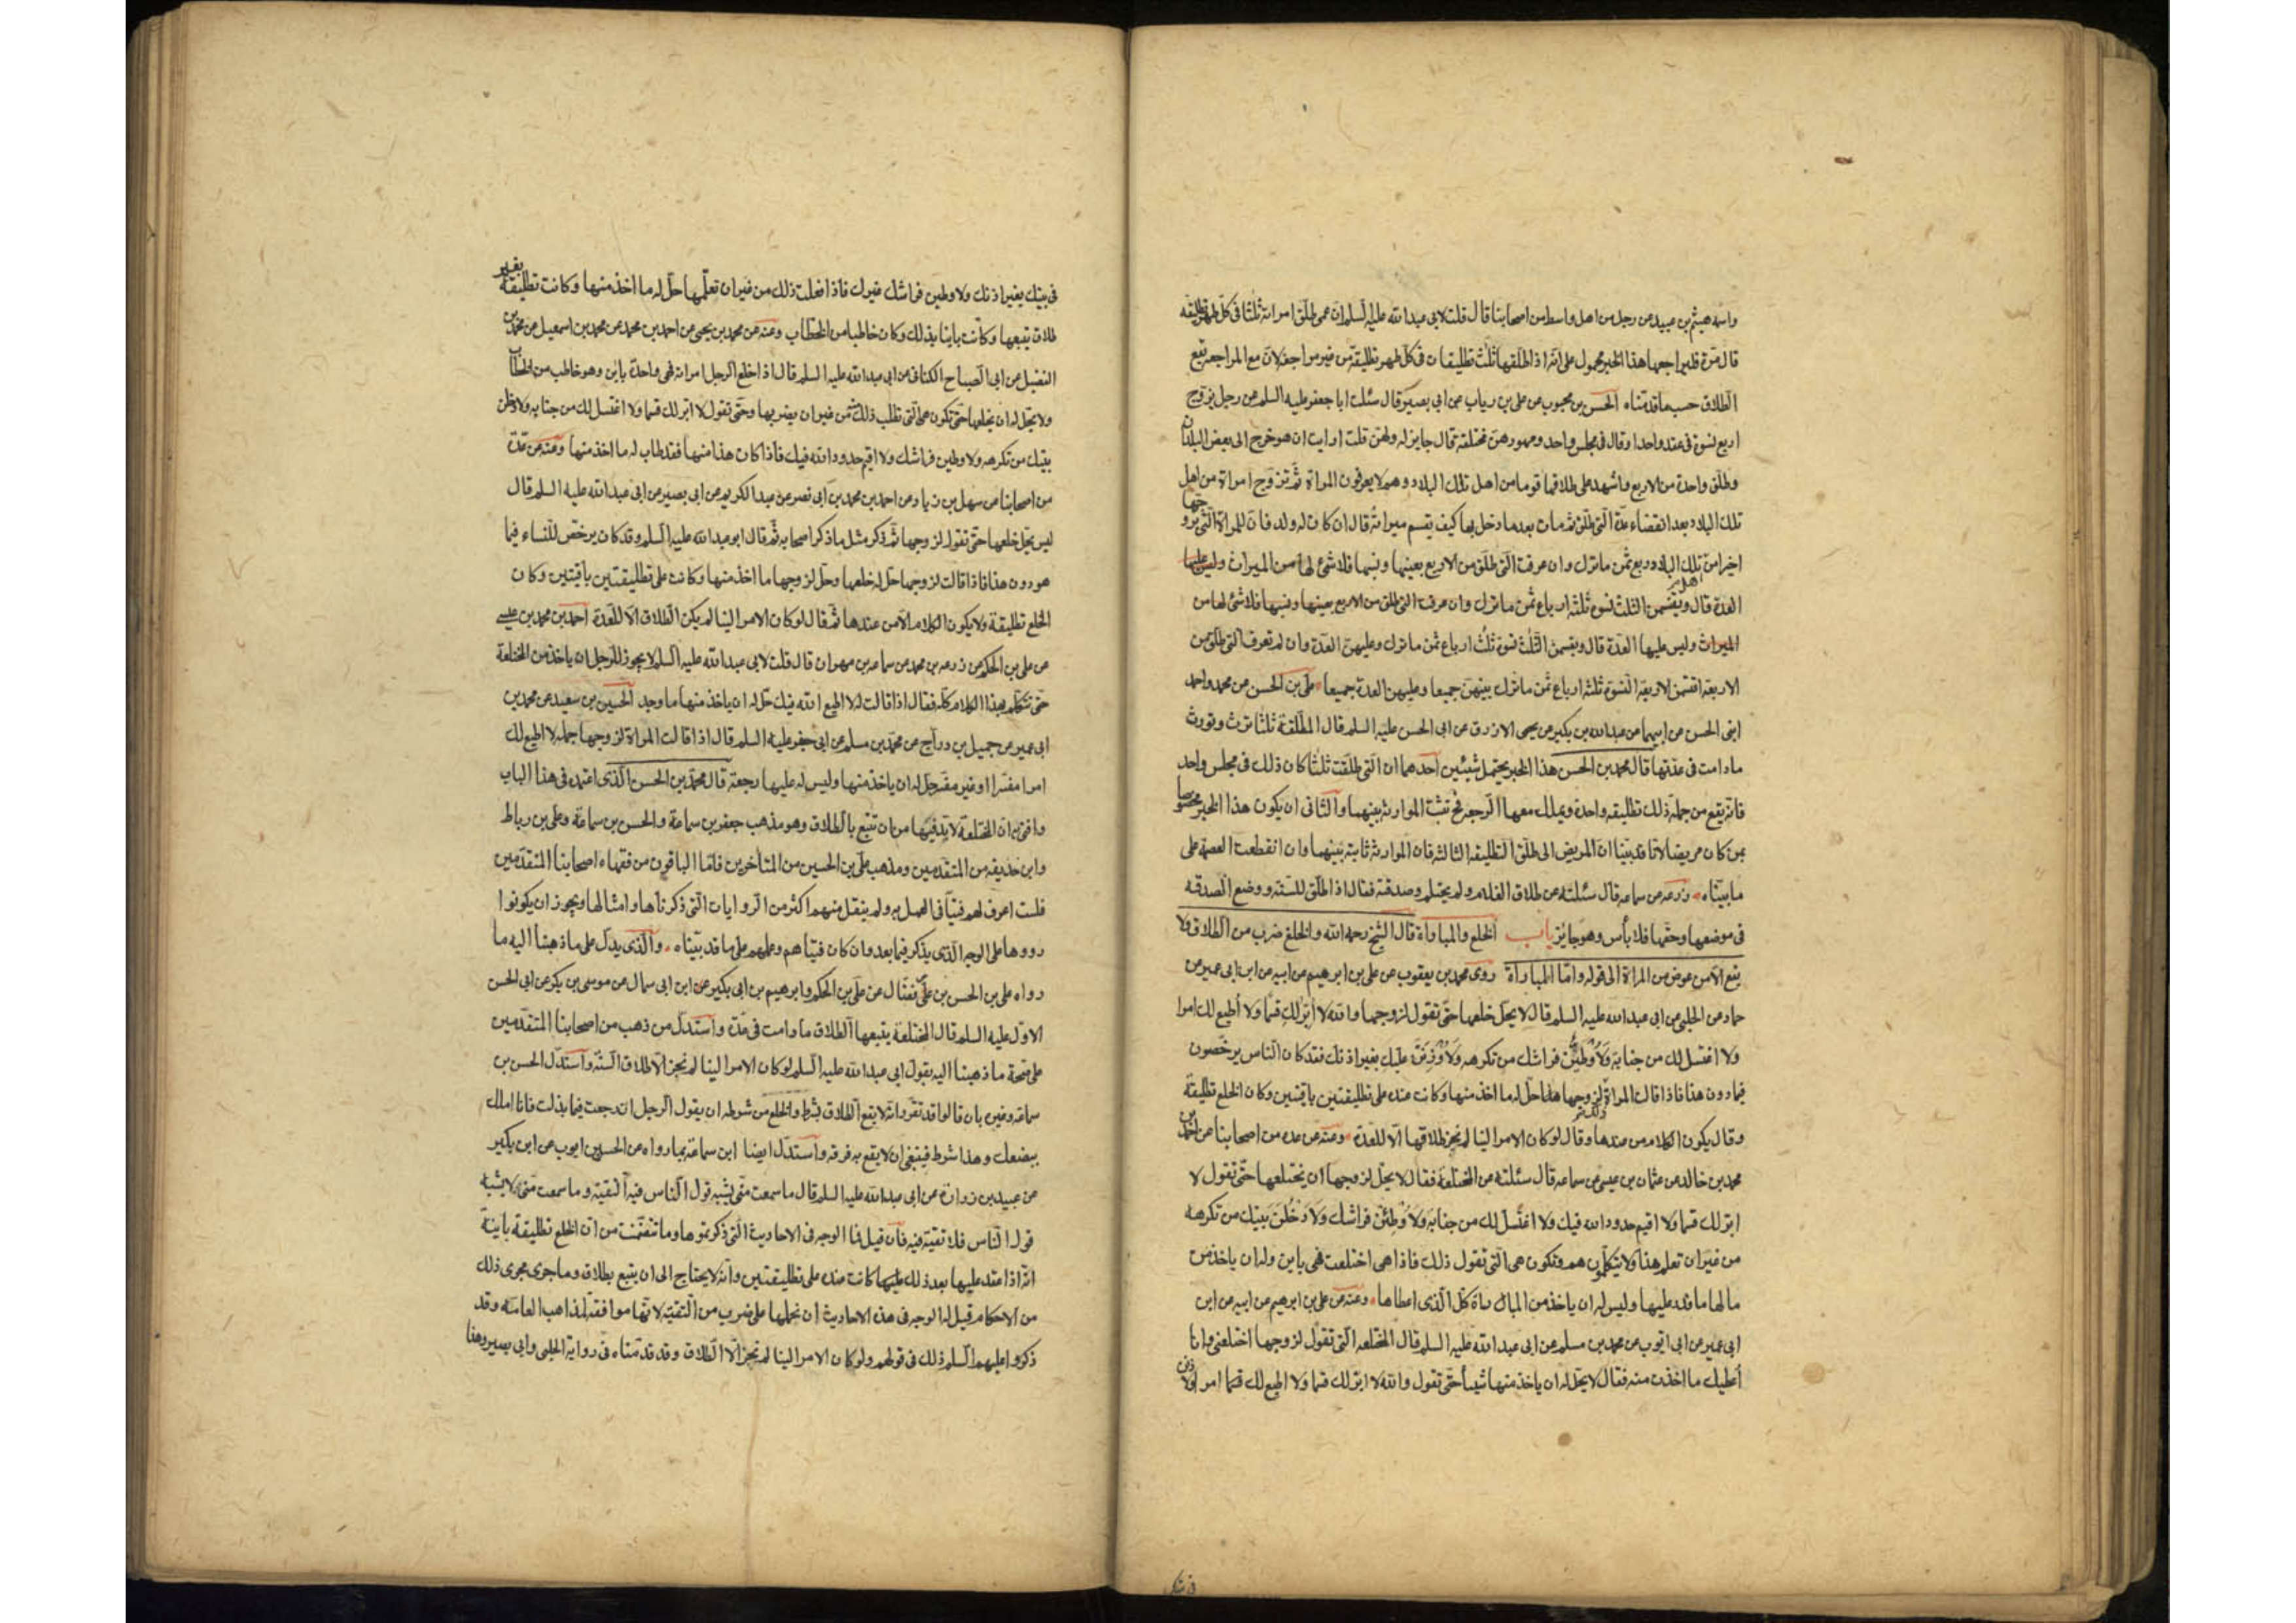 واسمه هيثم بن عبيد عن رجل من اهل واسط من اصحابنا قال قلت لابى عبد الله عليه السلم ان عمى طلق امراته ثلثا فى كل طهر تطليقه
قال مره فليراجعها هذا الخبر محمول على انه اذا طلقها ثلث تطليقات فى كل طهر تطليقة من غير مراجعة لان مع المراجعه تقع
الطلاق حسب ما قدمناه الحسن بن محبوب عن على بن رياب عن ابى بصير قال سئلت ابا جعفر عليه السلم عن رجل يزوج
اربع نسوة فى عقد واحد او قال فى مجلس واحد ومهورهن مختلفة قال جايز له ولهن قلت ارايت ان هو خرج الى بعض البلدان
وطلق واحدة من الاربع واشهد على طلاقها قوما من اهل تلك البلاد وهم لا يعرفون المراة ثم تزوج امراة من اهل
تلك البلاد بعد انقضاء عدة التى طلق ثم مات بعد ما دخل بها كيف يقسم ميراثه قال ان كان له ولد فان للمراة التى تزوجها
اخيرا من اهل تلك البلاد ربع ثمن ما ترك وان عرفت التى طلق من الاربع بعينها ونسبها فلا شئ لها من الميراث وليس عليها
العدة قال ويقسمن الثلث نسوة ثلثه ارباع ثمن ما ترك وان عرفت التى طلق من الاربع بعينها ونسبها فلا شئ لها من
الميراث وليس عليها العدة قال ويقسمن الثلث نسوة ثلث ارباع ثمن ما ترك وعليهن العدة وان لم تعرف التى طلق من
الاربعة اقتسمن الاربعة النسوة ثلثه ارباع ثمن ما ترك بينهن جميعا وعليهن العدة جميعا على بن الحسن عن محمد واحمد
ابنى الحسن عن ابيهما عن عبد الله بن بكير عن يحيى الازرق عن ابى الحسن عليه السلم قال المطلقة ثلثا ترث وتورث
ما دامت فى عدتها قال محمد بن الحسن هذا الخبر يحتمل شيئين احدهما ان التى طلقت ثلثا كان ذلك فى مجلس واحد
فانه يقع من جملة ذلك تطليقه واحدة ويملك معها الرجعه فح تثبت الموارثه بينهما والثانى ان يكون هذا الخبر مخصوصا
بمن كان مريضا لانا قد بينا ان المريض اذا طلق التطليقه الثالثه فان الموارثه ثابتة بينهما وان انقطعت العصمة على
ما بيناه وزرعه عن سماعه قال سئلته عن طلاق الغلام ولم يحتلم وصدقته فقال اذا طلق للسنة ووضع الصدقه
فى موضعها وحقها فلا بأس وهو جايز باب الخلع والمباراة قال الشيخ رحمه الله والخلع ضرب من الطلاق ولا
يقع الا من عوض من المراة الى قوله واما المباراة روى محمد بن يعقوب عن على بن ابرهيم عن ابيه عن ابن ابى عمير عن
حماد عن الحلبى عن ابى عبد الله عليه السلم قال لا يحل خلعها حتى تقول لزوجها والله لا ابر لك قسما ولا اطيع لك امرا
ولا اغتسل لك من جنابة ولاوطين فراشك من تكرهه ولاوذنن عليك بغير اذنك فقد كان الناس يرخصون
فيما دون هذا فاذا قالت المراة ذلك لزوجها حل له ما اخذ منها وكانت عنده على تطليقتين باقيتين وكان الخلع تطليقة
وقال يكون الكلام من عندها وقال لو كان الامر الينا لم نجز طلاقها الا للعدة وعنه عن عده من اصحابنا عن احمد بن
محمد بن خالد عن عثمان بن عيسى عن سماعه قال سئلته عن المختلعة فقال لا يحل لزوجها ان يختلعها حتى تقول لا
ابر لك قسما ولا اقيم حدود الله فيك ولا اغتسل لك من جنابة ولاوطئن فراشك ولادخلن بيتك من تكرهه
من غير ان تعلم هذا ولا يتكلمون هم وتكون هى التى تقول ذلك فاذا هى اختلعت فهى باين وله ان ياخذ من
مالها ما قدر عليها وليس له ان ياخذ من المباراة كل الذى اعطاها وعنه عن على بن ابرهيم عن ابيه عن ابن
ابى عمير عن ابى ايوب عن محمد بن مسلم عن ابى عبد الله عليه السلم قال المختلعه التى تقول لزوجها اختلعنى وانا
اعطيك ما اخذت منه فقال لا يحل له ان ياخذ منها شيأ حتى تقول والله لا ابر لك قسما ولا اطيع لك امرا ولاوذنن
فى بيتك بغير اذنك ولاوطين فراشك غيرك فاذا فعلت ذلك من غير ان تعلمها حل له ما اخذ منها وكانت تطليقة بغير
طلاق يتبعها وكانت باينا بذلك وكان خاطبا من الخطاب وعنه عن محمد بن يحيى عن احمد بن محمد عن محمد بن اسمعيل عن محمد بن
الفضيل عن ابى الصباح الكنانى عن ابى عبد الله عليه السلم قال اذا خلع الرجل امراته فهى واحدة باين وهو خاطب من الخطاب
ولا يحل له ان يخلعها حتى تكون هى التى تطلب ذلك منه من غير ان يضر بها وحتى تقول لا ابر لك قسما ولا اغتسل لك من جنابه ولادخلن
بيتك من تكرهه ولاوطين فراشك ولا اقيم حدود الله فيك فاذا كان هذا منها فقد طاب له ما اخذ منها وعنه عن عدة
من اصحابنا عن سهل بن زياد عن احمد بن محمد بن ابى نصر عن عبد الكريم عن ابى بصير عن ابى عبد الله عليه السلم قال
ليس يحل خلعها حتى تقول لزوجها ثم ذكر مثل ما ذكر اصحابه ثم قال ابو عبد الله عليه السلم وقد كان يرخص للنساء فيما
هو دون هذا فاذا قالت لزوجها حل له خلعها وحل لزوجها ما اخذ منها وكانت على تطليقتين باقيتين وكان
الخلع تطليقة ولا يكون الكلام الا من عندها ثم قال لو كان الامر الينا لم يكن الطلاق الا للعدة احمد بن محمد بن عيسى
عن على بن الحكم عن زرعه بن محمد عن سماعه بن مهران قال قلت لابى عبد الله عليه السلم لا يجوز للرجل ان ياخذ من المختلعة
حتى تتكلم بهذا الكلام كله فقال اذا قالت له لا اطيع الله فيك حل له ان ياخذ منها ما وجد الحسين بن سعيد عن محمد بن
ابى عمير عن جميل بن دراج عن محمد بن مسلم عن ابى جعفر عليه السلم قال اذا قالت المراة لزوجها جملة لا اطيع لك
امرا مفسرا او غير مفسر حل له ان ياخذ منها وليس له عليها رجعة قال محمد بن الحسن الذى اعتمده فى هذا الباب
وافتى به ان المختلعة لا بد فيها من ان تتبع بالطلاق وهو مذهب جعفر بن سماعة والحسن بن سماعة وعلى بن رباط
وابن حذيفه من المتقدمين ومذهب على بن الحسين من المتأخرين فاما الباقون من فقهاء اصحابنا المتقدمين
فلست اعرف لهم فتيا فى العمل به ولم ينقل منهم اكثر من الروايات التى ذكرناها وامثالها ويجوز ان يكونوا
رووها على الوجه الذى يذكر فيما بعد وان كان فتياهم وعملهم على ما قد بيناه والذى يدل على ما ذهبنا اليه ما
رواه على بن الحسن بن على بن فضال عن على بن الحكم وابرهيم بن ابى بكير عن ابن ابى سمال عن موسى بن بكر عن ابى الحسن
الاول عليه السلم قال المختلعة يتبعها الطلاق ما دامت فى عدة واستدل من ذهب من اصحابنا المتقدمين
على صحة ما ذهبنا اليه بقول ابى عبد الله عليه السلم لو كان الامر الينا لم نجز الا طلاق السنة واستدل الحسن بن
سماعه وغيره بان قالوا قد تقرر انه لا يقع الطلاق بشرط والخلع من شرطه ان يقول الرجل ان رجعت فيما بذلت فانا املك
ببضعك وهذا شرط فينبغى ان لا يقع به فرقه واستدل ايضا ابن سماعة بما رواه عن الحسن بن ايوب عن ابن بكير
عن عبيد بن زرارة عن ابى عبد الله عليه السلم قال ما سمعت منى يشبه قول الناس فيه التقية وما سمعت منى لا يشبه
قول الناس فلا تقية فيه فان قيل فما الوجه فى الاحاديث التى ذكرتموها وما تضمنت من ان الخلع تطليقة باينة
انه اذا عقد عليها بعد ذلك كانت عنده على تطليقتين وانه لا يحتاج الى ان يتبع بطلاق وما جرى مجرى ذلك
من الاحكام قيل له الوجه فى هذه الاحاديث ان نحملها على ضرب من التقية لانها موافقة لمذاهب العامة وقد
ذكروا عليهم السلم ذلك فى قولهم ولو كان الامر الينا لم نجز الا الطلاق وقد قدمناه فى رواية الحلبى وابى بصير وهذا